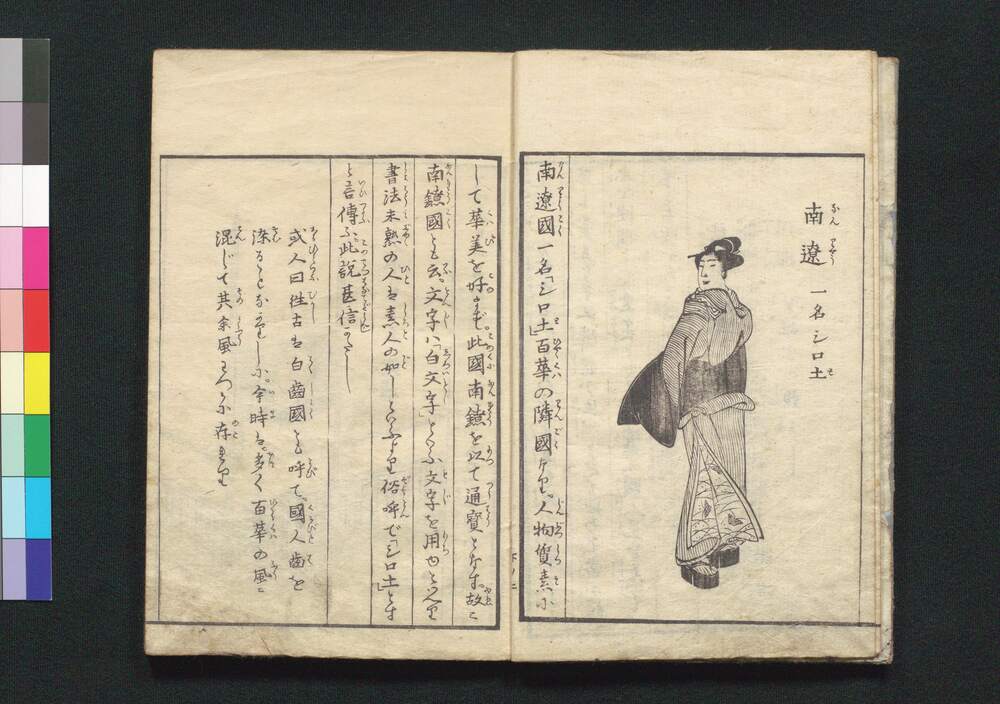 南遼 一名シロ土
南遼國一名「シロ土」百華の隣國なり。人物質素に
して華美を好まず。此國南鐐を以て通寳となす。故に
南鐐國とも云。文字ハ「白文字」といふ文字を用ゆといへり
書法未熟の人は素人の如しといふより俗呼で「シロ土」とす
と言傳ふ。此説甚信じがたし
或人曰往古は白齒國とも呼て。國人齒を
染ることなかりしに。今時は。多く百華の風に
混じて其余風わづかに存せり
下ノ二